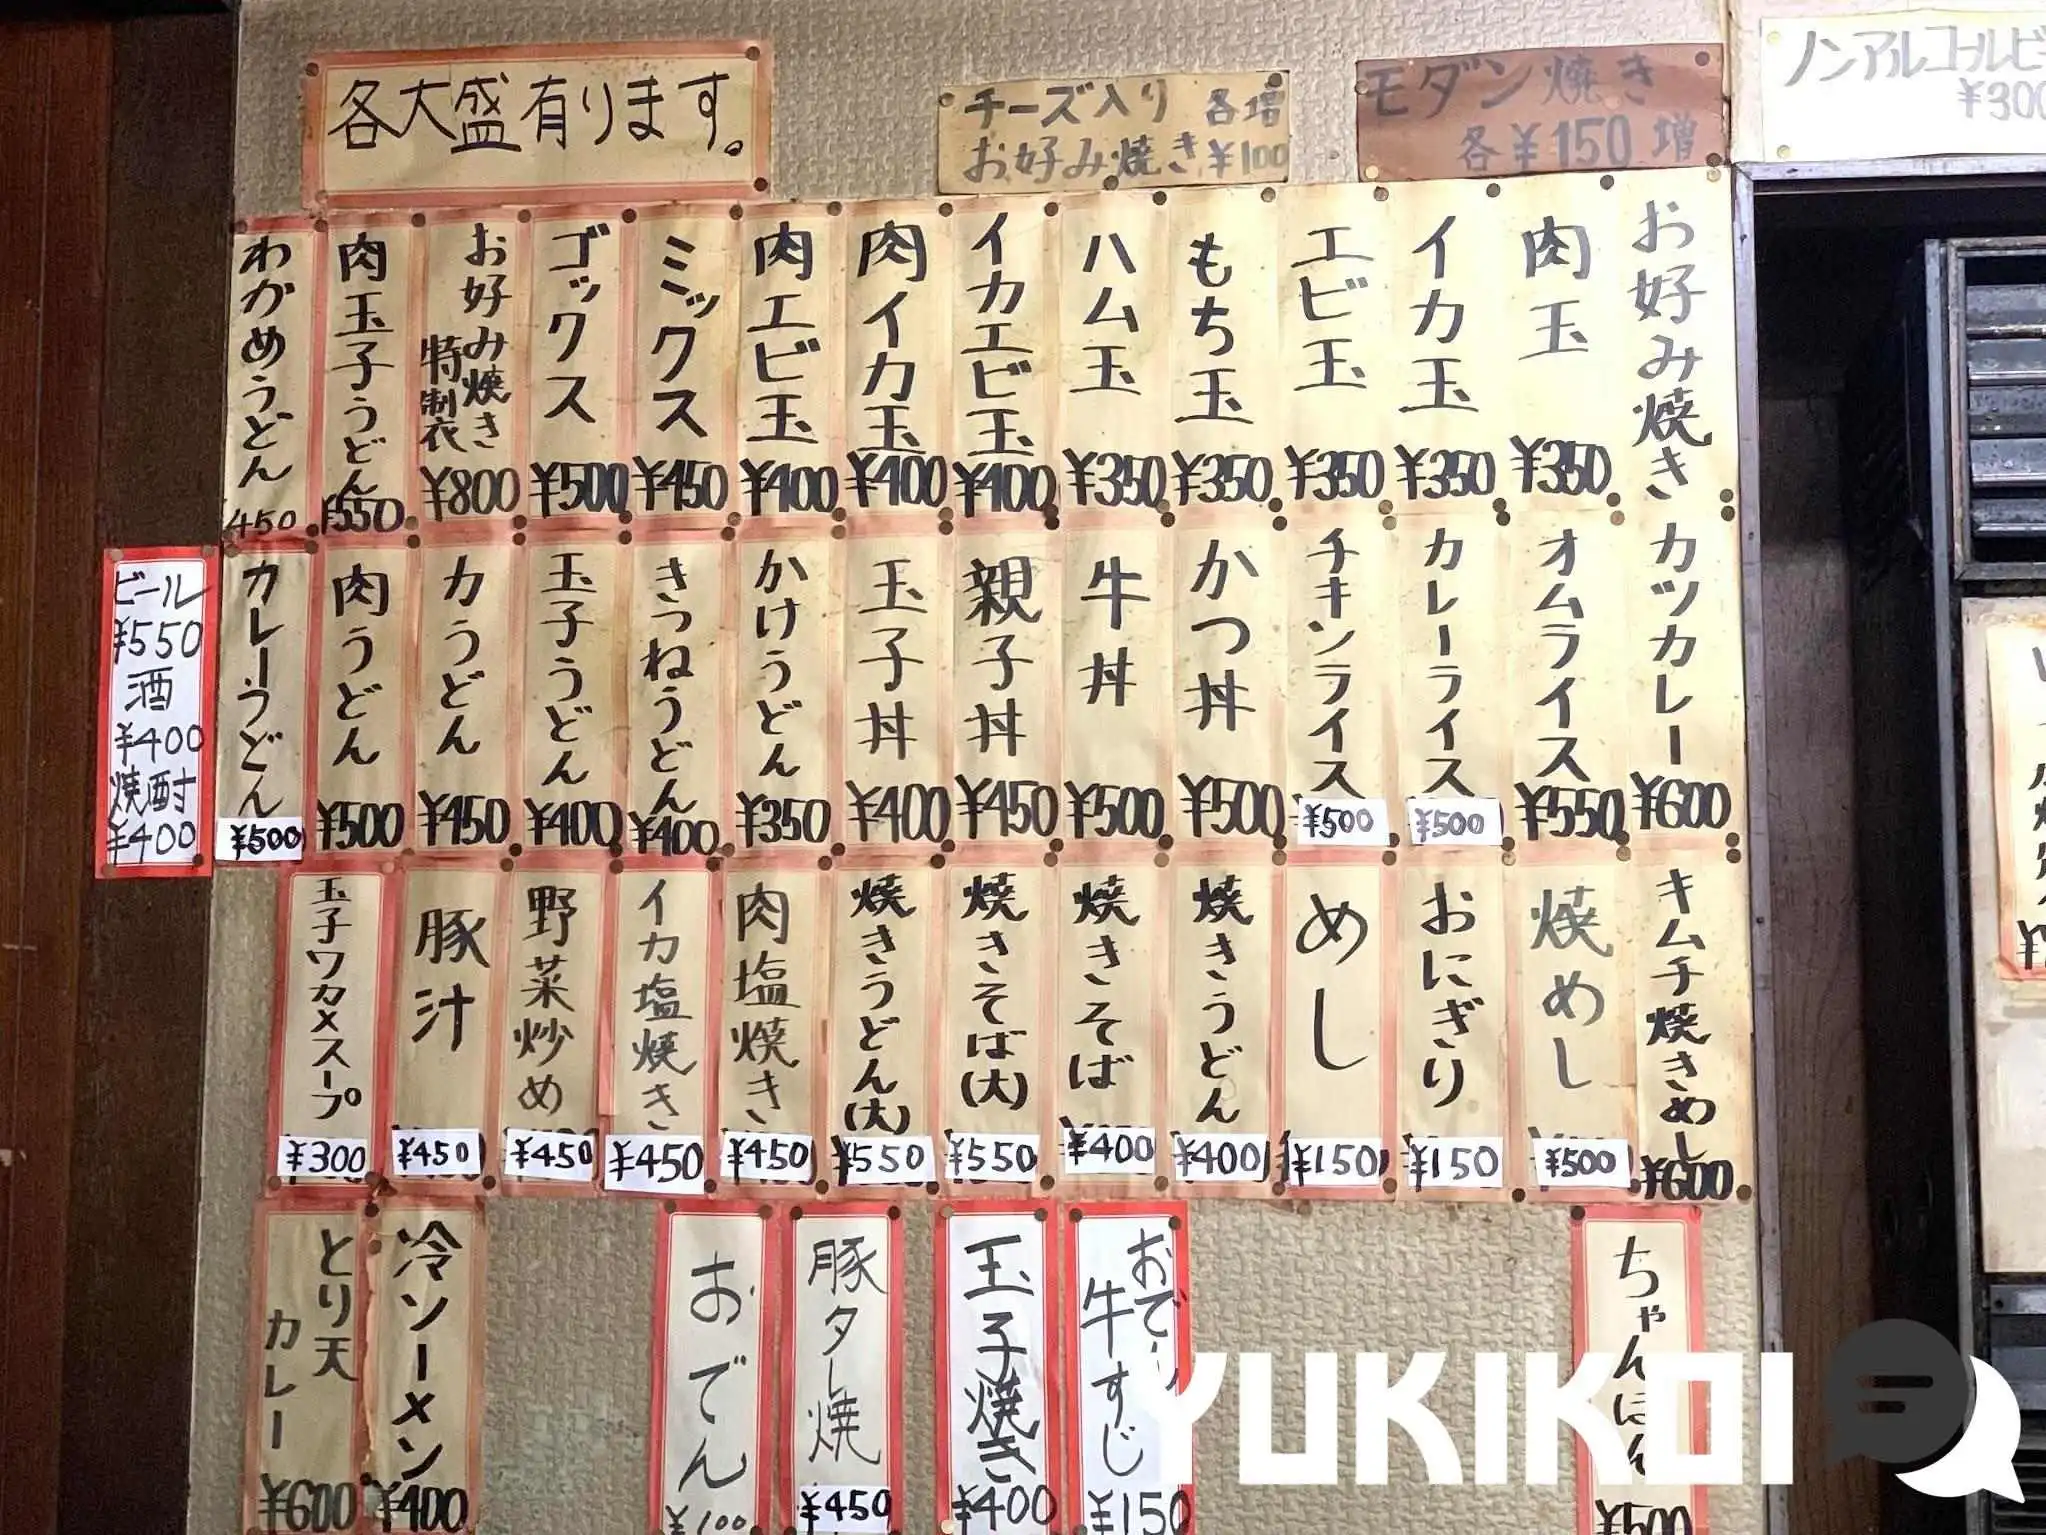 各大盛有ります。
チーズ入り 各増
お好み焼き ¥100
モダン焼き
各¥150増
ノンアルコールビ
¥300
お好み焼き
肉玉 ¥350
イカ玉 ¥350
エビ玉 ¥350
もち玉 ¥350
ハム玉 ¥350
イカエビ玉 ¥400
肉イカ玉 ¥400
肉エビ玉 ¥400
ミックス ¥450
ゴックス ¥500
お好み焼き
特制衣
¥800
肉玉子うどん ¥550
わかめうどん 450
カツカレー ¥600
オムライス ¥550
カレーライス ¥500
チキンライス ¥500
かつ丼 ¥500
牛丼 ¥500
親子丼 ¥450
玉子丼 ¥400
かけうどん ¥350
きつねうどん ¥400
玉子うどん ¥400
力うどん ¥450
肉うどん ¥500
カレーうどん ¥500
ビール
¥550
酒
¥400
焼酎
¥400
キムチ焼きめし ¥600
焼めし ¥500
おにぎり ¥150
めし ¥150
焼きうどん ¥400
焼きそば ¥400
焼きそば(大) ¥550
焼きうどん(大) ¥550
肉塩焼き ¥450
イカ塩焼き ¥450
野菜炒め ¥450
豚汁 ¥450
玉子ワカメスープ ¥300
ちゃんぽん ¥500
おでん
牛すじ
¥150
玉子焼き ¥400
豚タレ焼 ¥450
おでん ¥100
冷ソーメン ¥400
とり天
カレー
¥600
YUKIKOI